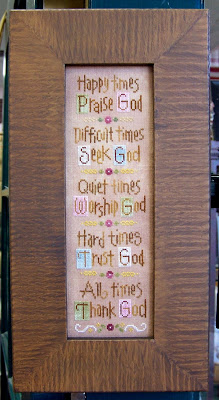 Happy times
Praise God
Difficult times
Seek God
Quiet times
Worship God
Hard times
Trust God
All times
Thank God